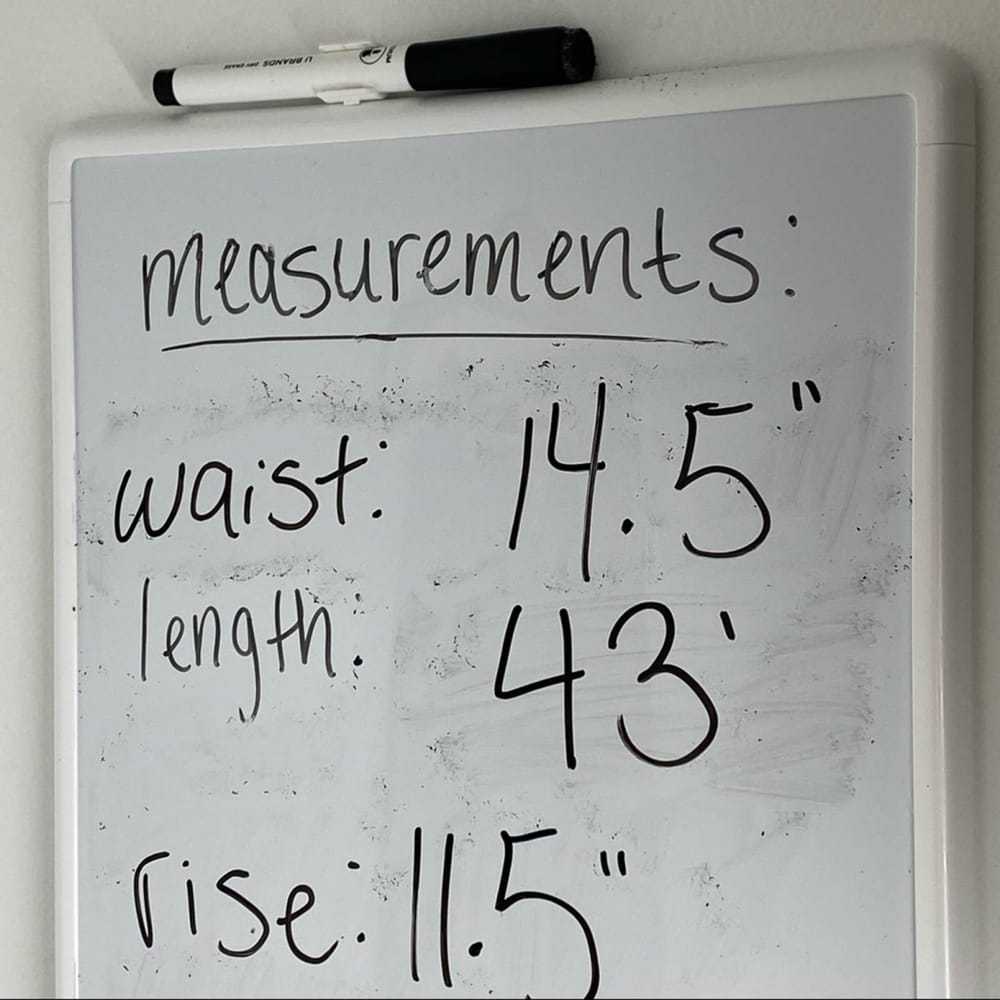 U BRANDS DRY ERASE
measurements:
waist: 14.5"
length: 43'
rise: 11.5"